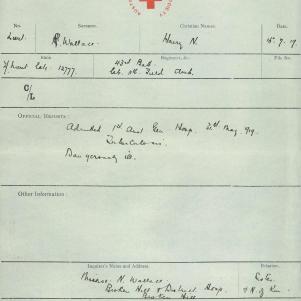 No. Surname. Christian Names. Date.
Lieut. Wallace. Harry N. 15.7.19
Rank Regiment, &c. File No.
Lieut 12777. 43rd Batt.
Field Amb.
OFFICIAL REPORTS :
Admitted 1st Aust Gen Hosp. 31st May 919.
Tuberculosis.
Dangerously ill.
Other Information :
Inquirer's Name and Address. Relation.
N. Wallace. Sister
Broken Hill & District Hosp. & N. of Kin
Broken Hill